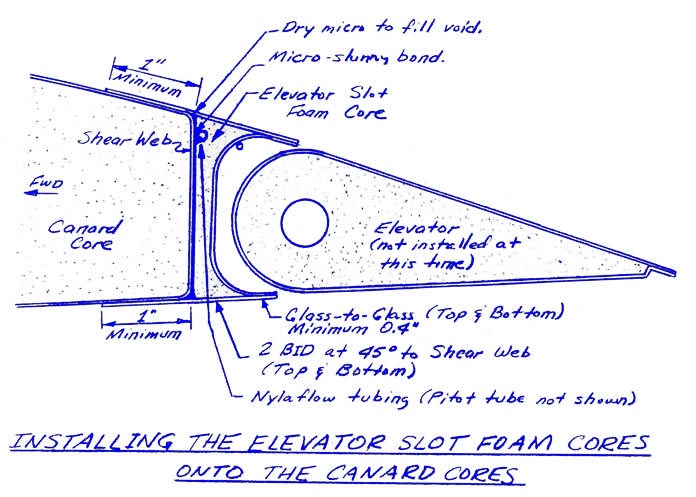 Dry micro to fill void.
Micro-slurry bond.
1"
Minimum
Elevator Slot
Foam Core
Shear Web
FWD
Canard
Core
Elevator
(not installed at
this time)
Glass-to-Glass (Top & Bottom)
Minimum 0.4"
1"
Minimum
2 BID at 45° to Shear Web
(Top & Bottom)
Nylaflow tubing (Pitot tube not shown)
INSTALLING THE ELEVATOR SLOT FOAM CORES
ONTO THE CANARD CORES